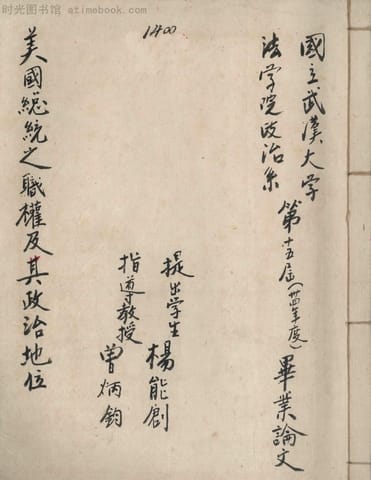 时光图书馆 - atimebook.com
1400
國立武漢大学
法学院政治系
第十五届(卅四年度)畢業論文
提出学生 楊能創
指導教授 曾炳鈞
美國總統之職權及其政治地位